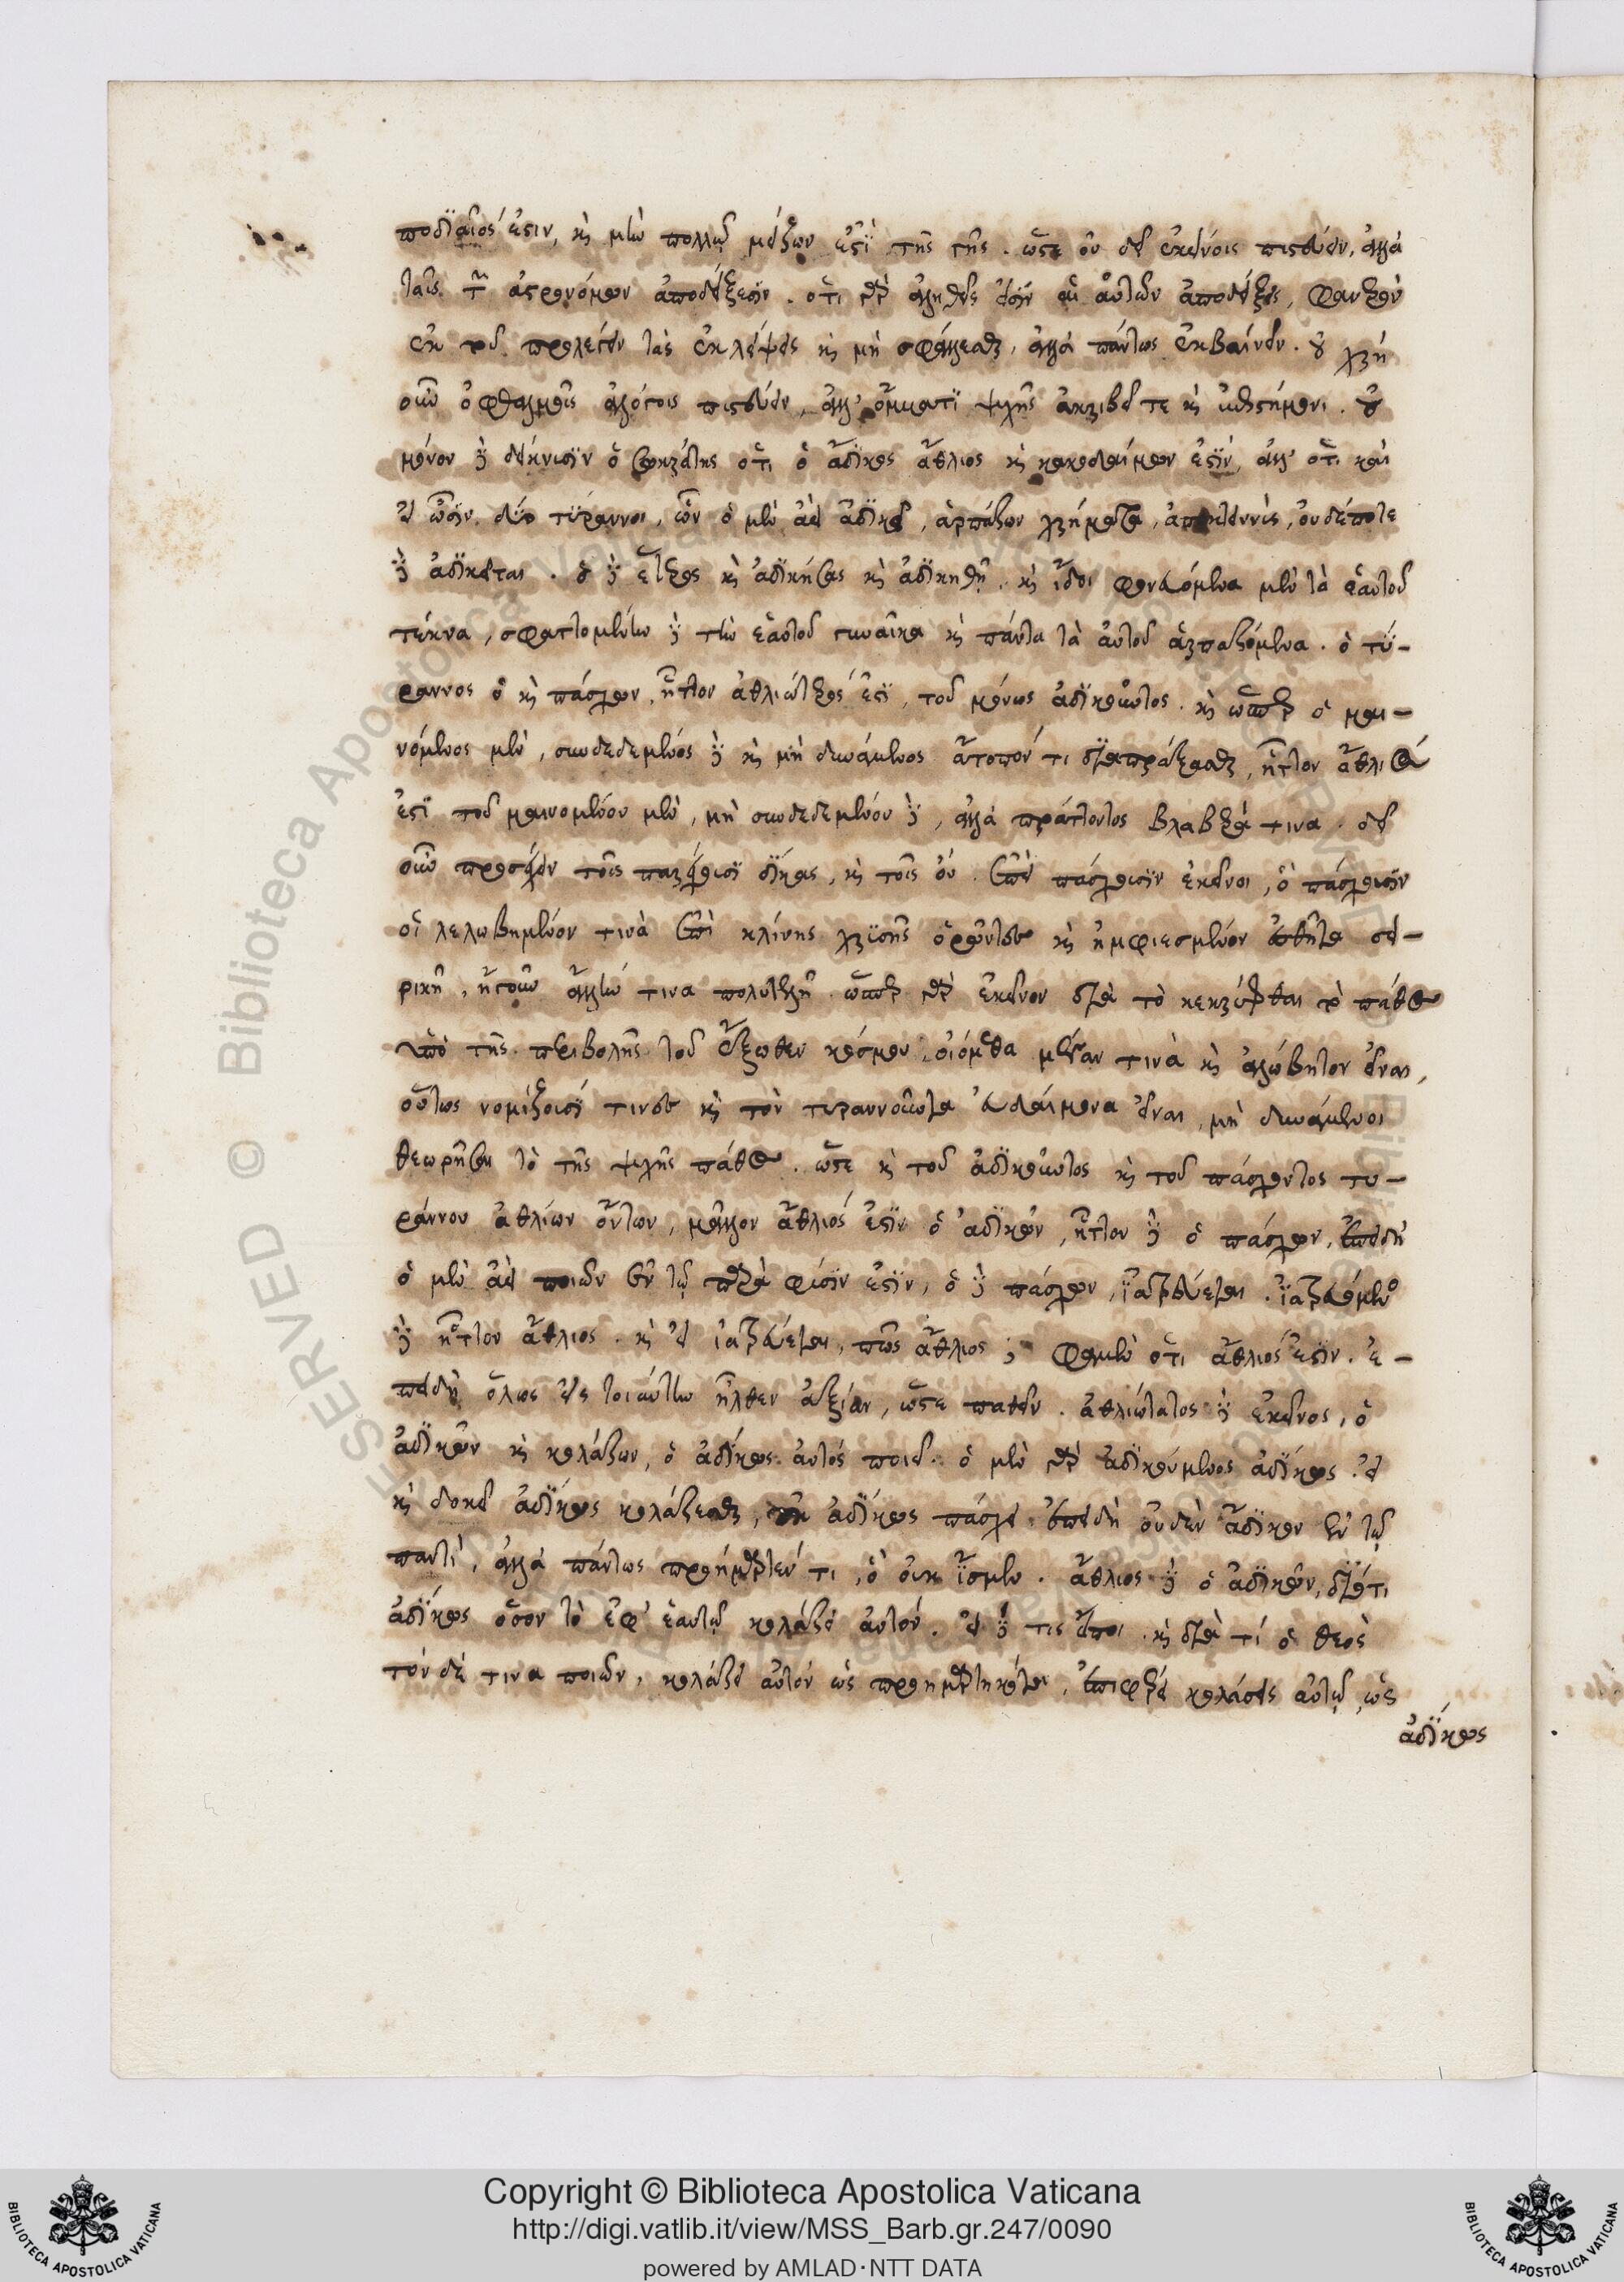 ποδιαῖός ἐστιν, καὶ μὴν πολλῷ μείζων ἐστὶ τῆς γῆς. ὥστε οὐ δεῖ ἐκείνοις πιστεύειν, ἀλλὰ
ταῖς τῶν ἀστρονόμων ἀποδείξεσιν. ὅτι γὰρ ἀληθεῖς εἰσὶν αἱ αὐτῶν ἀποδείξεις, φανερὸν
ἐκ τοῦ προλέγειν τὰς ἐκλείψεις καὶ μὴ σφάλλεσθαι, ἀλλὰ πάντως ἐκβαίνειν. οὐ χρὴ
οὖν ὀφθαλμοῖς ἀλόγοις πιστεύειν, ἀλλ' ὄμματι ψυχῆς ἀκριβεῖ τε καὶ ἐπιστήμονι. οὐ
μόνον δὲ δείκνυσιν ὁ Σωκράτης ὅτι ὁ ἄδικος ἄθλιος καὶ κακοδαίμων ἐστὶν, ἀλλ' ὅτι καὶ
εἰ ὦσιν δύο τύραννοι, ὧν ὁ μὲν ἀεὶ ἀδικεῖ, ἁρπάζων χρήματα, ἀποκτεννὺς, οὐδέποτε
δὲ ἀδικεῖται. ὁ δὲ ἕτερος καὶ ἀδικήσας καὶ ἀδικηθῇ. καὶ ἴδοι φονευόμενα μὲν τὰ ἑαυτοῦ
τέκνα, σφαττομένην δὲ τὴν ἑαυτοῦ γυναῖκα καὶ πάντα τὰ αὐτοῦ ἁρπαζόμενα. ὁ τύ-
ραννος ὁ καὶ πάσχων, ἧττον ἀθλιώτερός ἐστι, τοῦ μόνως ἀδικοῦντος. καὶ ὥσπερ ὁ μαι-
νόμενος μὲν, συνδεδεμένος δὲ καὶ μὴ δυνάμενος ἄτοπόν τι διαπράξασθαι, ἧττον ἄθλιός
ἐστι τοῦ μαινομένου μὲν, μὴ συνδεδεμένου δὲ, ἀλλὰ πράττοντος βλαβερά τινα. δεῖ
οὖν προσέχειν τοῖς παρέχουσι δίκας, καὶ τοῖς οὔ. ἐπεὶ πάσχουσιν ἐκεῖνοι, ὃ πάσχουσιν
οἱ λελωβημένον τινὰ ἐπὶ κλίνης χρυσῆς ὁρῶντες καὶ ἠμφιεσμένον ἐσθῆτα ση-
ρικὴ, ἤγουν ἄλλην τινα πολυτελῆ. ὥσπερ γὰρ ἐκεῖνον διὰ τὸ κεκρύφθαι τὸ πάθος
ὑπὸ τῆς περιβολῆς τοῦ ἔξωθεν κόσμου, οἰόμεθα μέγαν τινὰ καὶ ἀλώβητον εἶναι,
οὕτως νομίζουσί τινες καὶ τὸν τυραννοῦντα εὐδαίμονα εἶναι, μὴ δυνάμενοι
θεωρῆσαι τὸ τῆς ψυχῆς πάθος. ὥστε καὶ τοῦ ἀδικοῦντος καὶ τοῦ πάσχοντος τυ-
ράννου ἀθλίων ὄντων, μᾶλλον ἄθλιός ἐστὶν ὁ ἀδικῶν, ἧττον δὲ ὁ πάσχων, ἐπειδὴ
ὁ μὲν ἀεὶ ποιῶν ἐν τῷ παρὰ φύσιν ἐστὶν, ὁ δὲ πάσχων, ἰατρεύεται. ἰατρευόμενος
δὲ ἧττον ἄθλιος. καὶ εἰ ἰατρεύεται, πῶς ἄθλιος; φαμὲν ὅτι ἄθλιός ἐστιν. ἐ-
πειδὴ ὅλως εἰς τοιαύτην ἦλθεν ἀξίαν, ὥστε παθεῖν. ἀθλιώτατος δὲ ἐκεῖνος, ὁ
ἀδικῶν καὶ κολάζων, ὁ ἀδίκως αὐτὸς ποιεῖ. ὁ μὲν γὰρ ἀδικούμενος ἀδίκως. εἰ
καὶ δοκεῖ ἀδίκως κολάζεσθαι, οὐκ ἀδίκως πάσχει. ἐπειδὴ οὐδὲν ἄδικον ἐν τῷ
παντὶ, ἀλλὰ πάντως προήμαρτέν τι, ὃ οὐκ ἴσμεν. ἄθλιος δὲ ὁ ἀδικῶν, διότι
ἀδίκως ὅσον τὸ ἐφ' ἑαυτῷ κολάζει αὐτόν. εἰ δέ τις εἴποι καὶ διὰ τί ὁ θεὸς
τόνδε τινα ποιῶν, κολάζει αὐτόν ὡς προημαρτηκότα, ἐπιφέρει κολάσεις αὐτῷ, ὡς
ἀδίκως
Copyright © Biblioteca Apostolica Vaticana
http://digi.vatlib.it/view/MSS_Barb.gr.247/0090
powered by AMLAD·NTT DATA